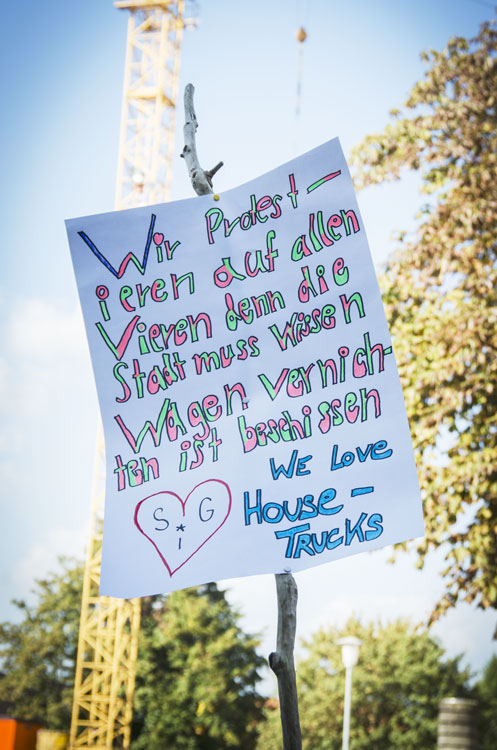 Wir Protest-
ieren auf allen
Vieren denn die
Stadt muss Wissen
Wagen vernich-
ten ist beschissen
WE LOVE
HOUSE-
TRUCKS
S * G
i